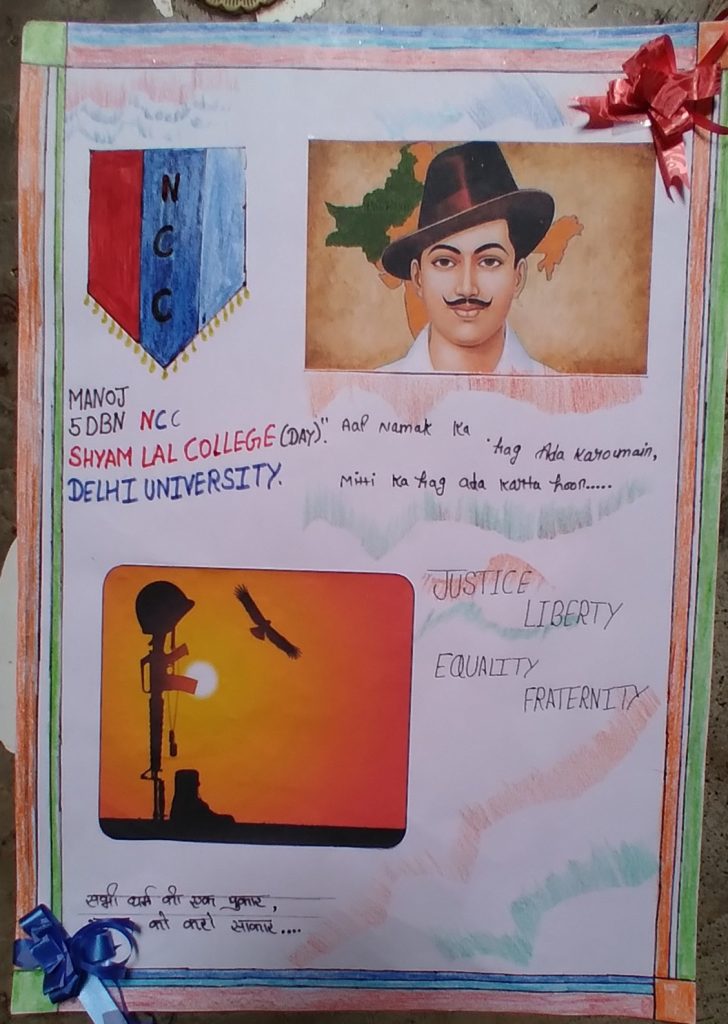 N
C
C
MANOJ
5 DBN NCC
SHYAM LAL COLLEGE (DAY).
DELHI UNIVERSITY.
"Aap Namak Ka
haq Ada Karo main,
Mitti Ka haq ada Karta hoon.....
JUSTICE
LIBERTY
EQUALITY
FRATERNITY
सभी धर्म की एक पुकार,
को करो साकार....